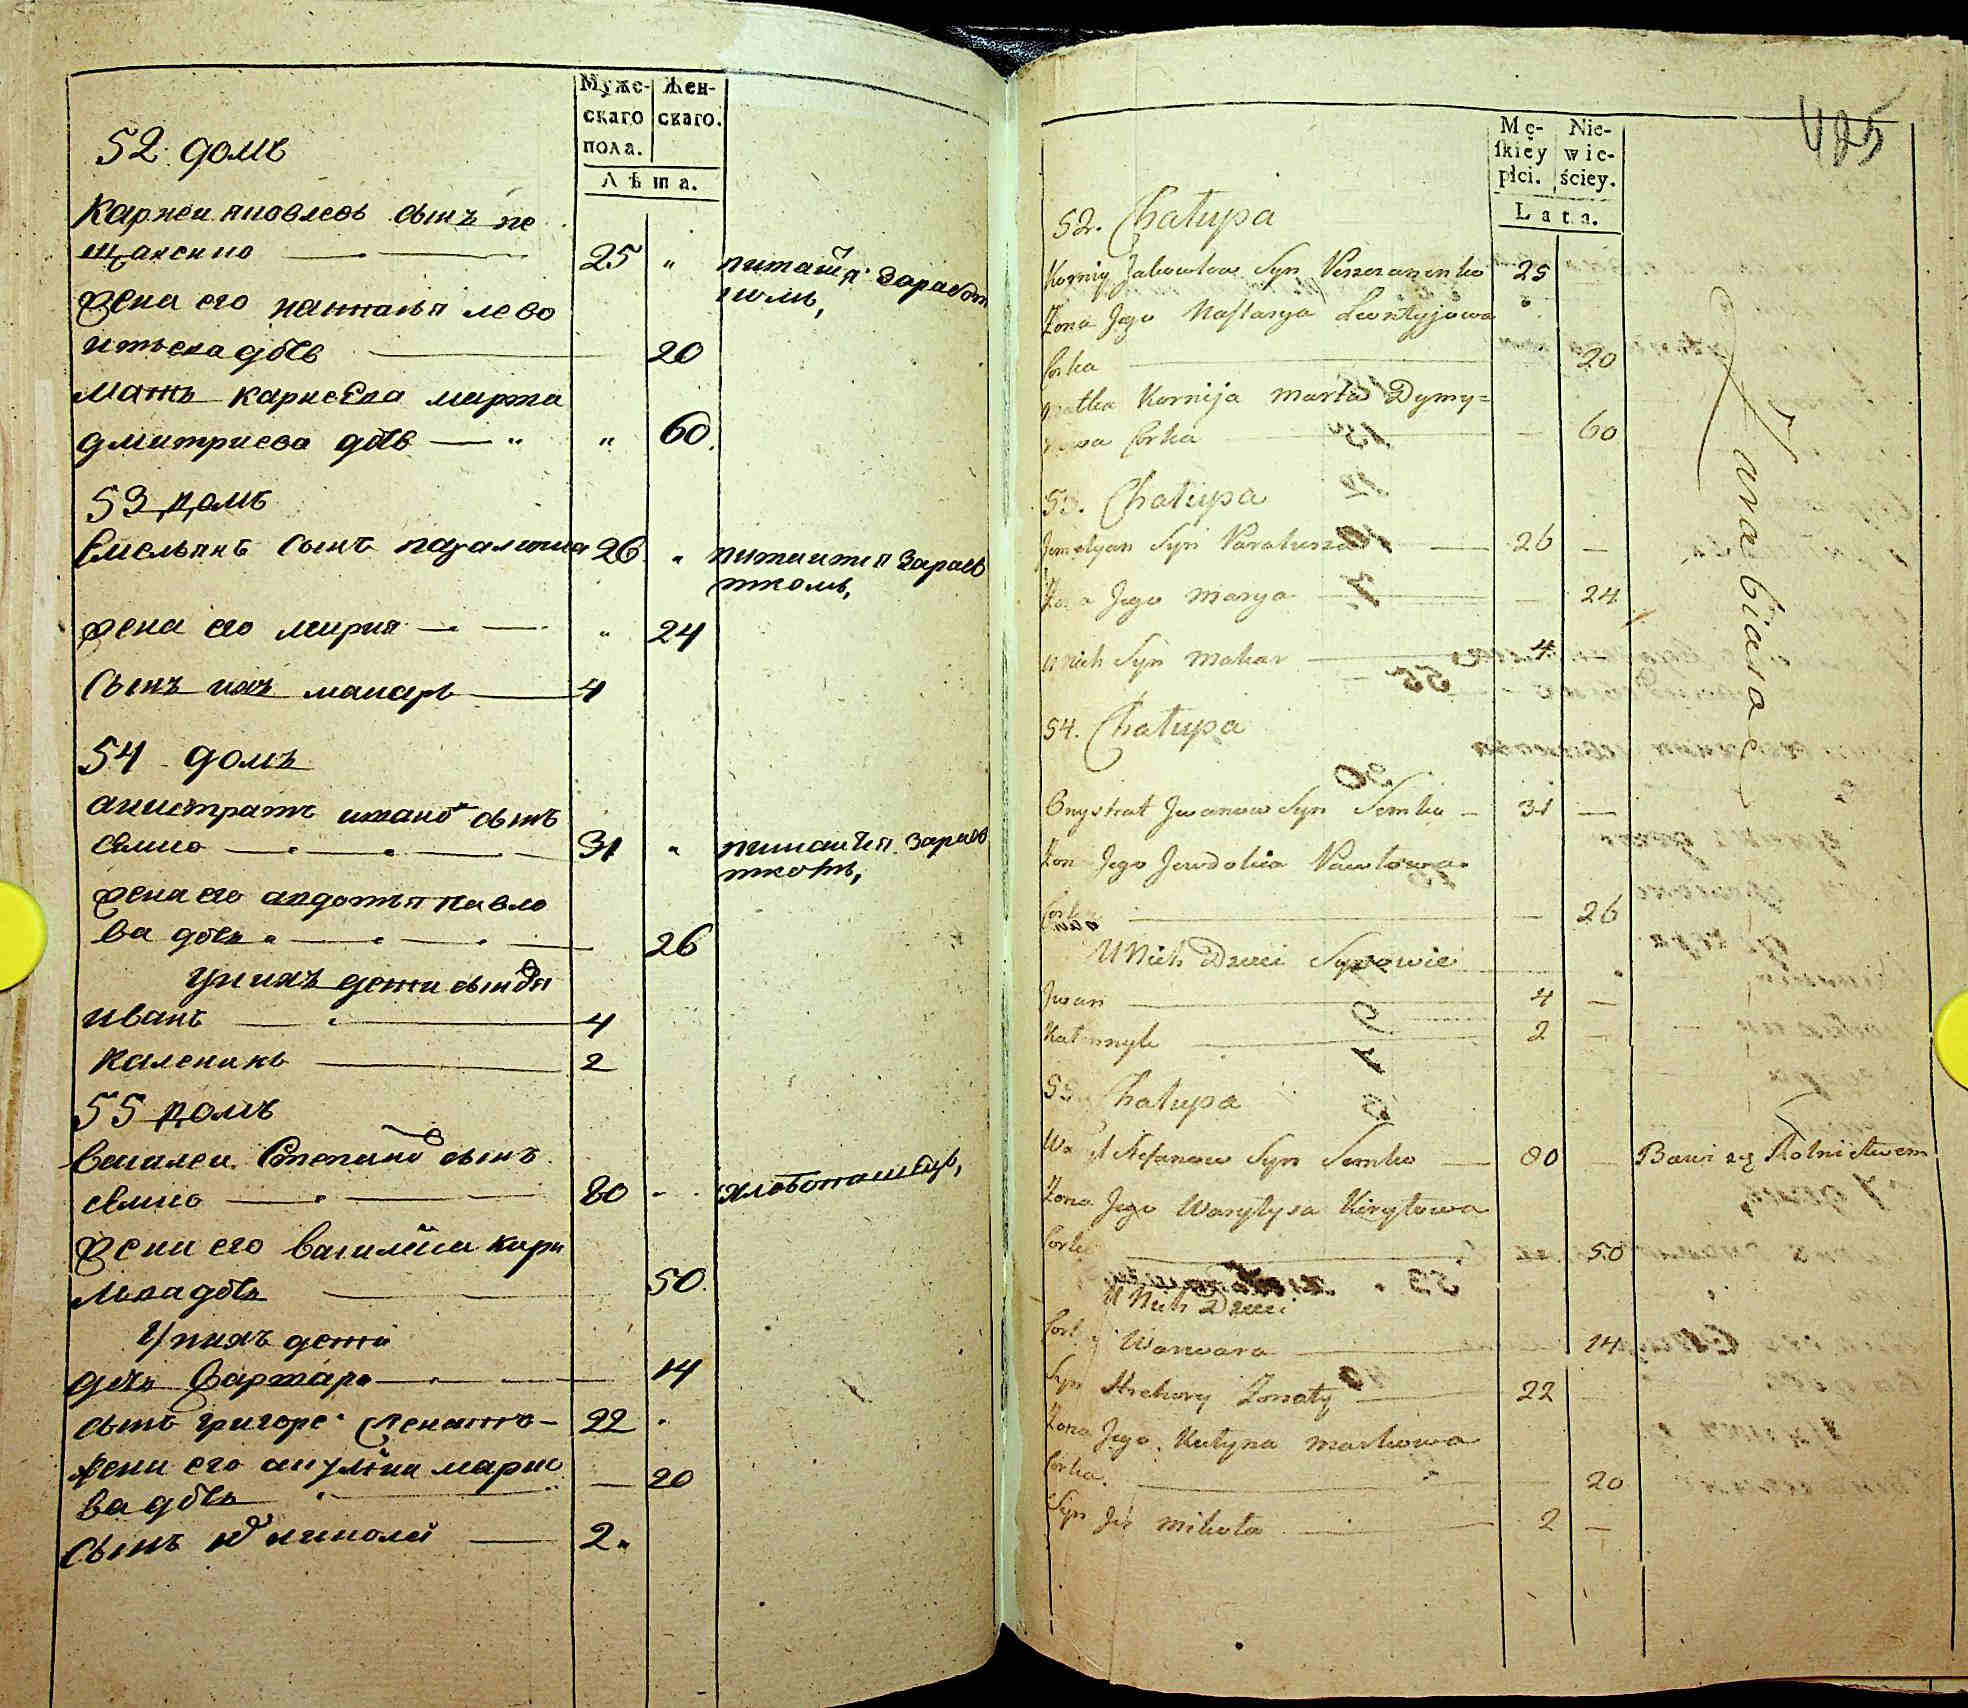 Муже-
скаго
пола.
Жен-
скаго.
Лѣта.
52 домъ
Карней яковлевъ сынъ пе
щаненко 25
питаитця заработ
комъ,
Жена его настасья лево
нтьева дочь 20
Мать карнеева марта
дмитриева дочь 60
53 домъ
Емельянъ сынъ 26
питаитця зараб
откомъ,
Жена его мария 24
Сынъ ихъ макаръ 4
54 домъ
анистратъ иванов сынъ
семко 31
питаитця зараб
откомъ,
Жена его авдотья павло
ва дочь 26
у нихъ дети сыновья
иванъ 4
каленикъ 2
55 домъ
Василей Степанов сынъ
семко 80
хлебопашецъ,
Жена его василиса кири
лова дочь 50
У нихъ дети
дочь варвара 14
сынъ григоре женатъ 22
жена его акулина марко
ва дочь 20
сынъ николай 2
425
Mę-
skiey
płci.
Nie-
wie-
ściey.
Lata.
52. Chałupa
Korniy Jakowlew Syn 25
Zona Jego Nastasya Leontyjowa
Corka 20
Matka Kornija Marta Dymy=
Corka 60
Zarabiaią
53. Chałupa
Jemelyan Syn 26
Zona Jego Marya 24
U nich Syn Makar 4
54. Chałupa
Onystrat Jwanow Syn Semko 31
Zona Jego Jewdokia Pawłowa
Corka 26
U Nich Dzieci Synowie
Jwan 4
Kalennyk 2
55 Chałupa
Wasyl Stefanow Syn Semko 80
Bawi się Rolnictwem
Zona Jego Wasylysa Kiryłowa
Corka 50
U Nich Dzieci
Corka Warwara 14
Syn Hrehory Zonaty 22
Zona Jego Kulyna Markowa
Corka 20
Syn Jch Mikoła 2